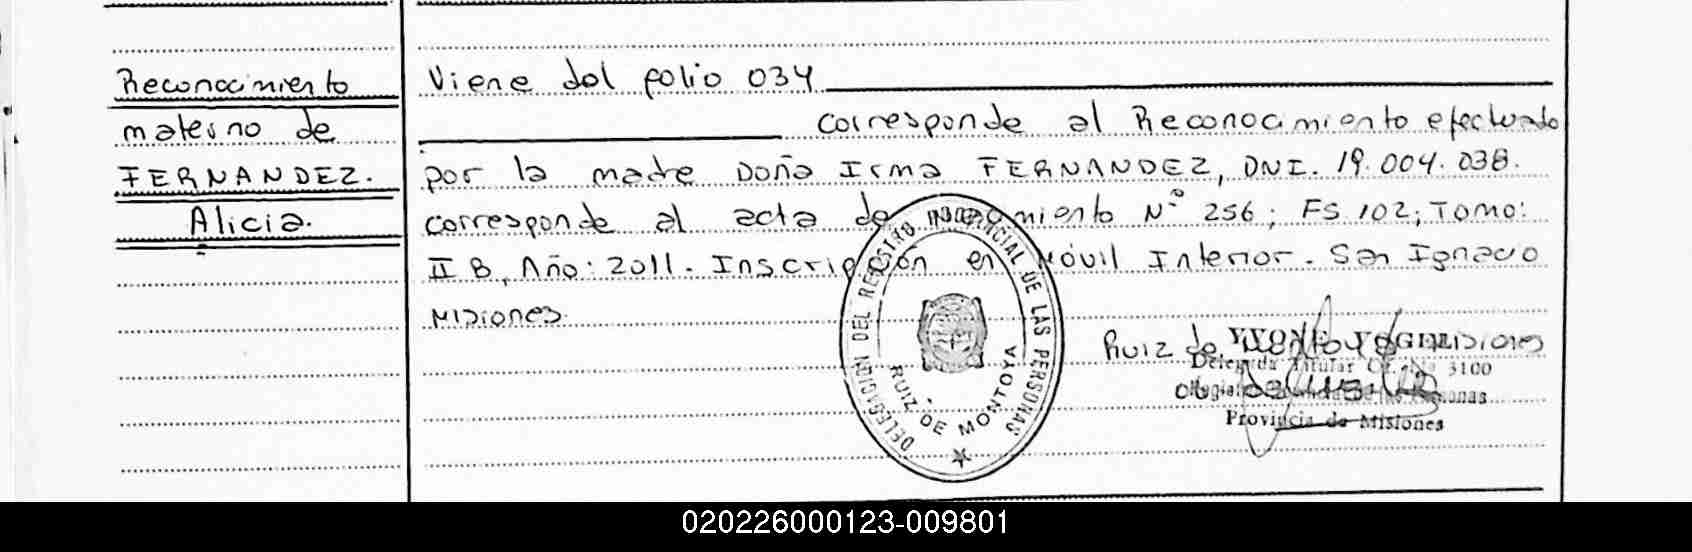 Reconocimiento
materno de
FERNANDEZ.
Alicia.
Viene del folio 034
corresponde al Reconocimiento efectuado
por la madre Doña Irma FERNANDEZ, DNI. 19.004.038.
corresponde al acta de Nº 256; FS 102; Tomo:
II B, Año: 2011. Inscripción en Móvil Interior. San Ignacio
Misiones.
Ruiz de Montoya Misiones
Delegada Titular Of. Nº 3100
Provincia de Misiones
DELEGACION DEL REGISTRO PROVINCIAL DE LAS PERSONAS
RUIZ DE MONTOYA
020226000123-009801